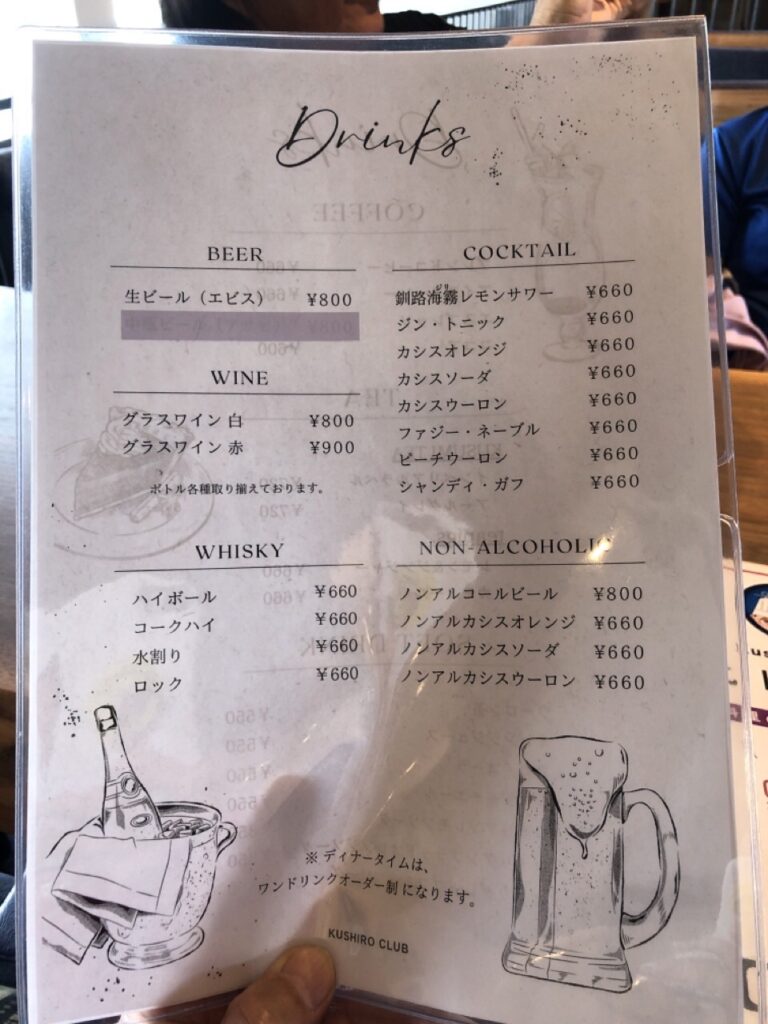 Drinks
BEER
生ビール（エビス） ¥800
WINE
グラスワイン 白 ¥800
グラスワイン 赤 ¥900
ボトル各種取り揃えております。
WHISKY
ハイボール ¥660
コークハイ ¥660
水割り ¥660
ロック ¥660
COCKTAIL
釧路海霧レモンサワー ¥660
ジン・トニック ¥660
カシスオレンジ ¥660
カシスソーダ ¥660
カシスウーロン ¥660
ファジー・ネーブル ¥660
ピーチウーロン ¥660
シャンディ・ガフ ¥660
NON-ALCOHOLIC
ノンアルコールビール ¥800
ノンアルカシスオレンジ ¥660
ノンアルカシスソーダ ¥660
ノンアルカシスウーロン ¥660
※ ディナータイムは、
ワンドリンクオーダー制 になります。
KUSHIRO CLUB